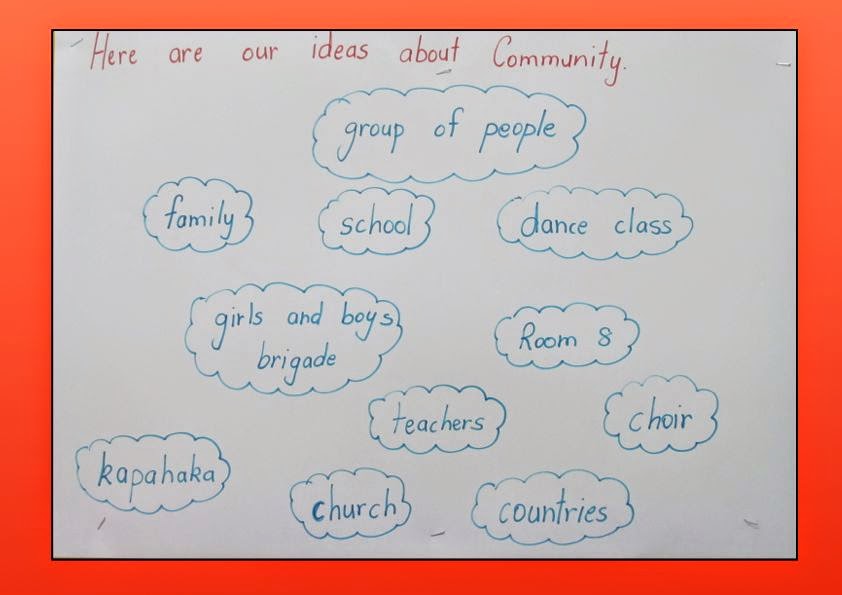 Here are our ideas about Community.
group of people
family
school
dance class
girls and boys
brigade
Room 8
teachers
choir
kapahaka
church
countries